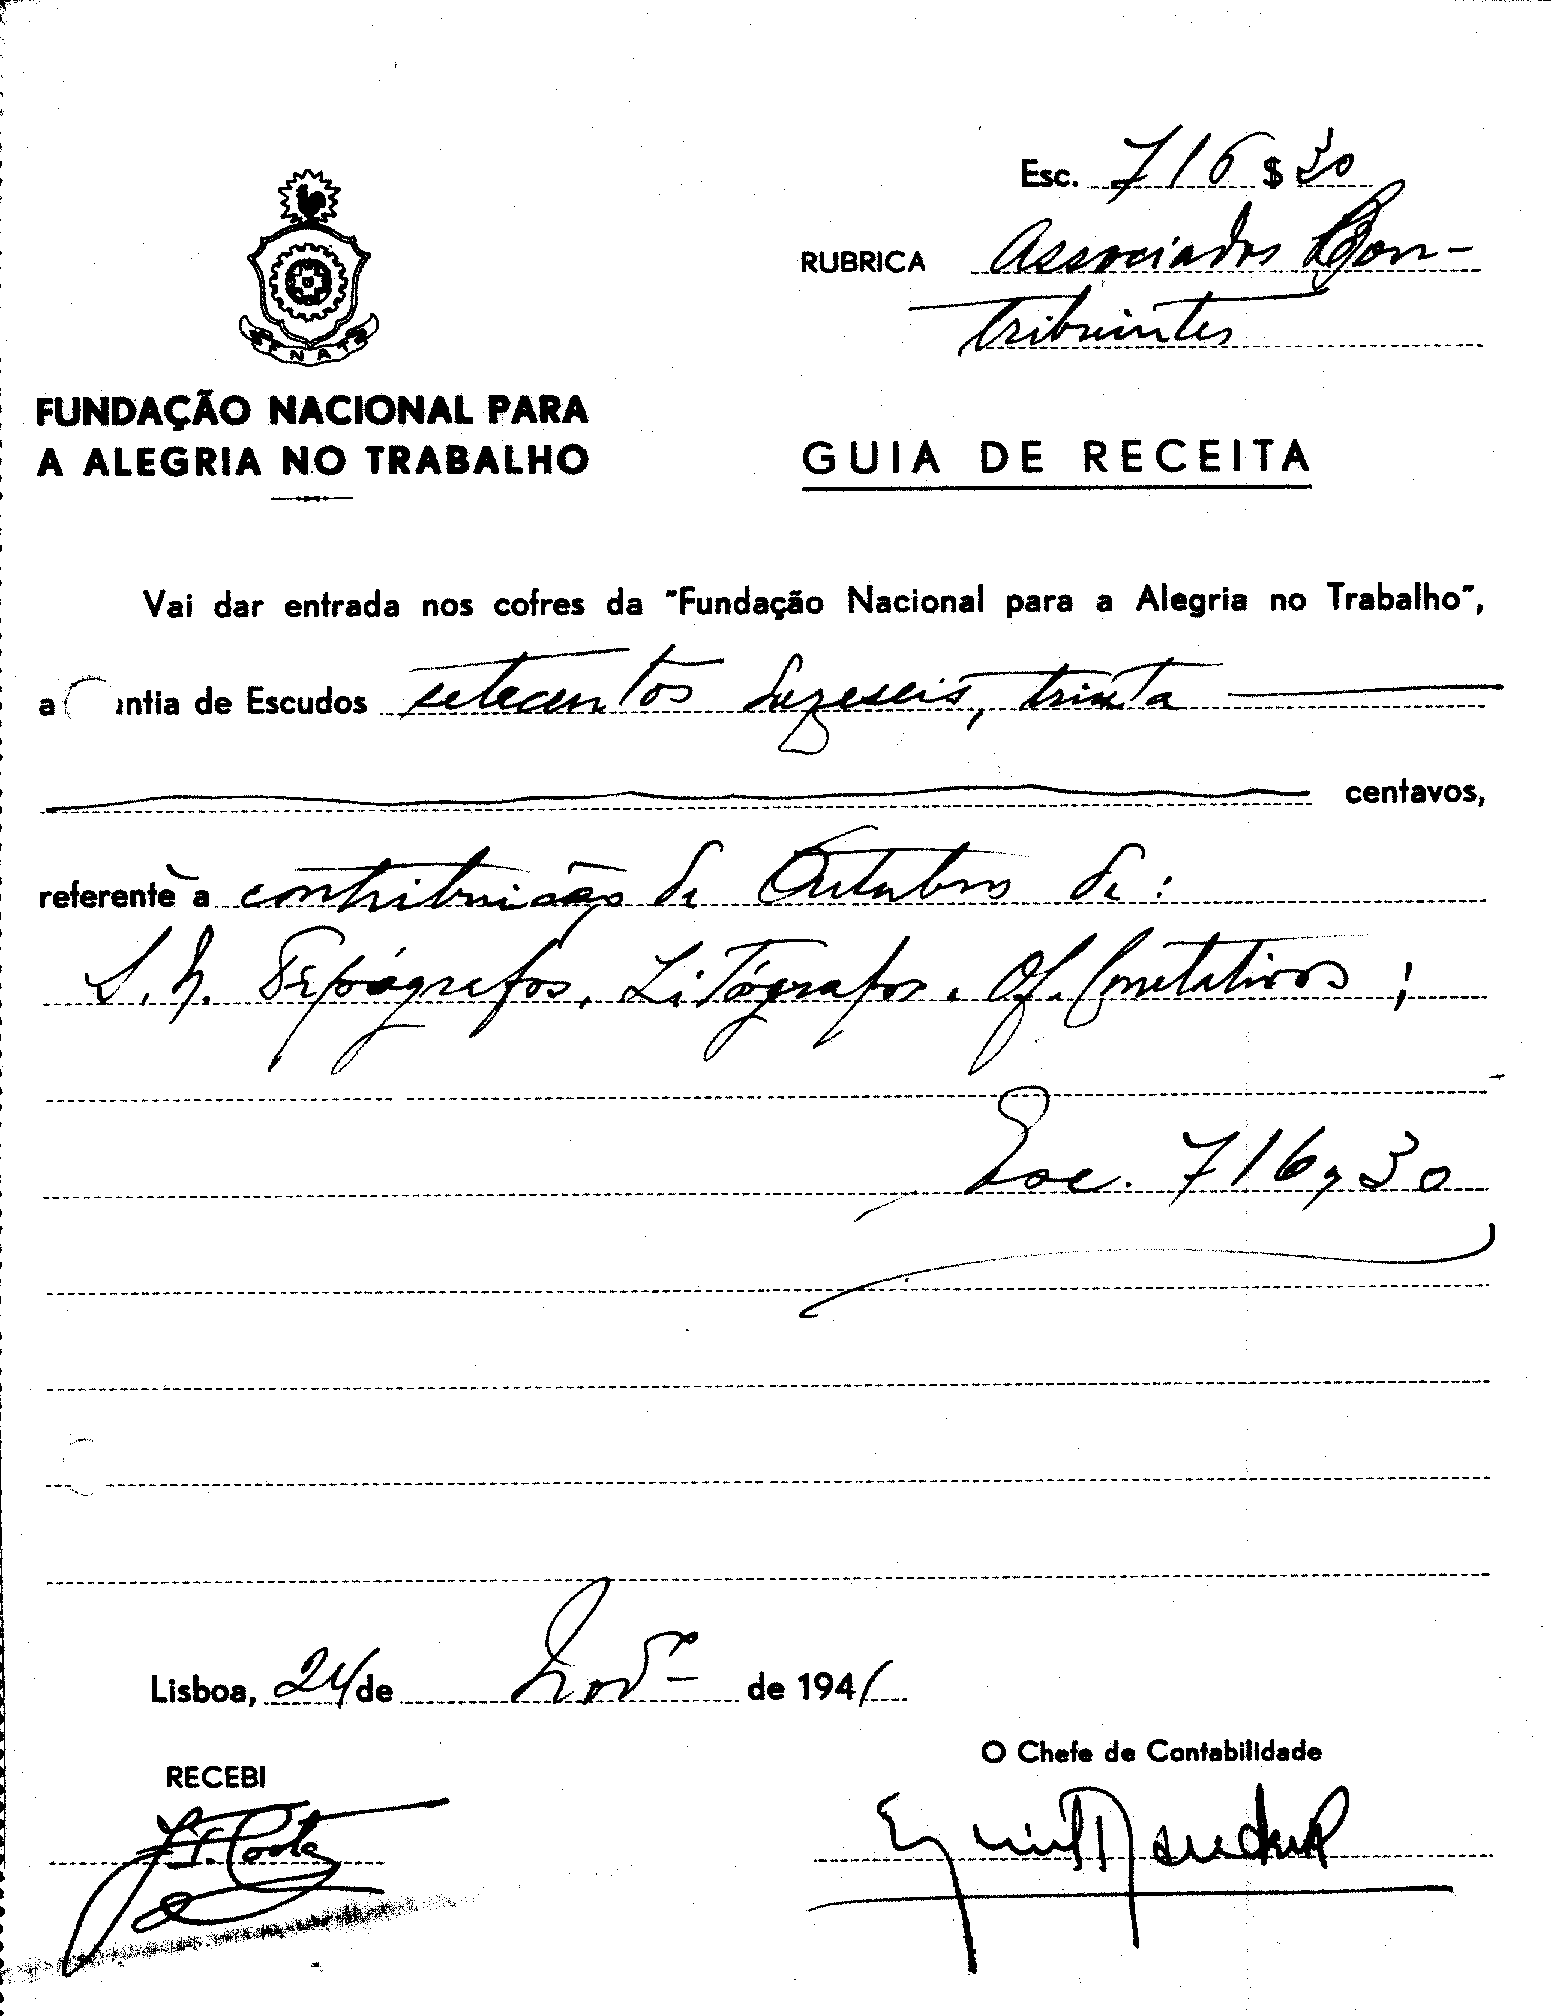 Esc. 716 $ 30
RUBRICA Associados Con-
tribuintes
FNAT
FUNDAÇÃO NACIONAL PARA
A ALEGRIA NO TRABALHO
GUIA DE RECEITA
Vai dar entrada nos cofres da "Fundação Nacional para a Alegria no Trabalho",
a ntia de Escudos setecentos dezeseis, trinta
centavos,
referente a contribuição de Outubro de:
S. N. Tipógrafos, Litógrafos, Of. Correlativos;
Esc. 716,30
Lisboa, 24 de Novº de 1941
O Chefe de Contabilidade
RECEBI
Costa